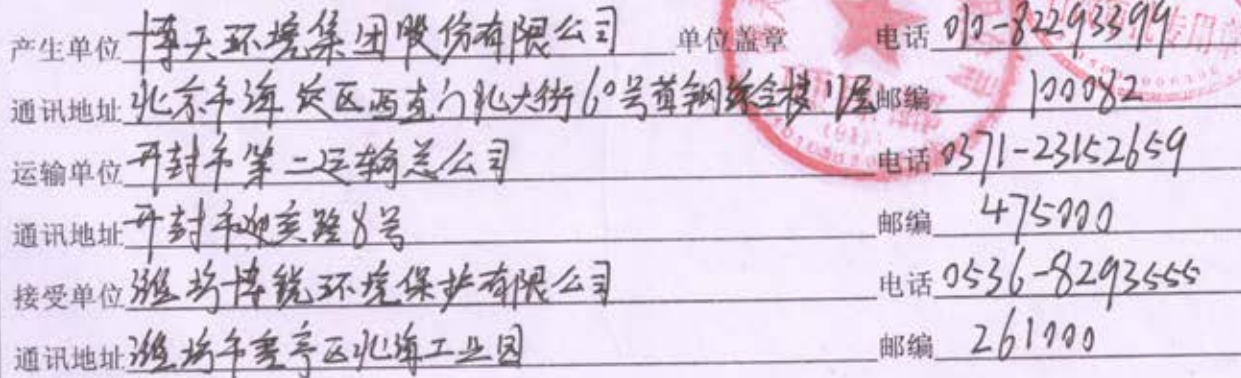 产生单位 博天环境集团股份有限公司 单位盖章 电话 010-82293399
通讯地址 北京市海淀区西直门北大街60号首钢综合楼11层 邮编 100082
运输单位 开封市第二运输总公司 电话 0371-23152659
通讯地址 开封市迎宾路8号 邮编 475000
接受单位 潍坊博锐环境保护有限公司 电话 0536-8293555
通讯地址 潍坊市寒亭区北海工业园 邮编 261000
专用章